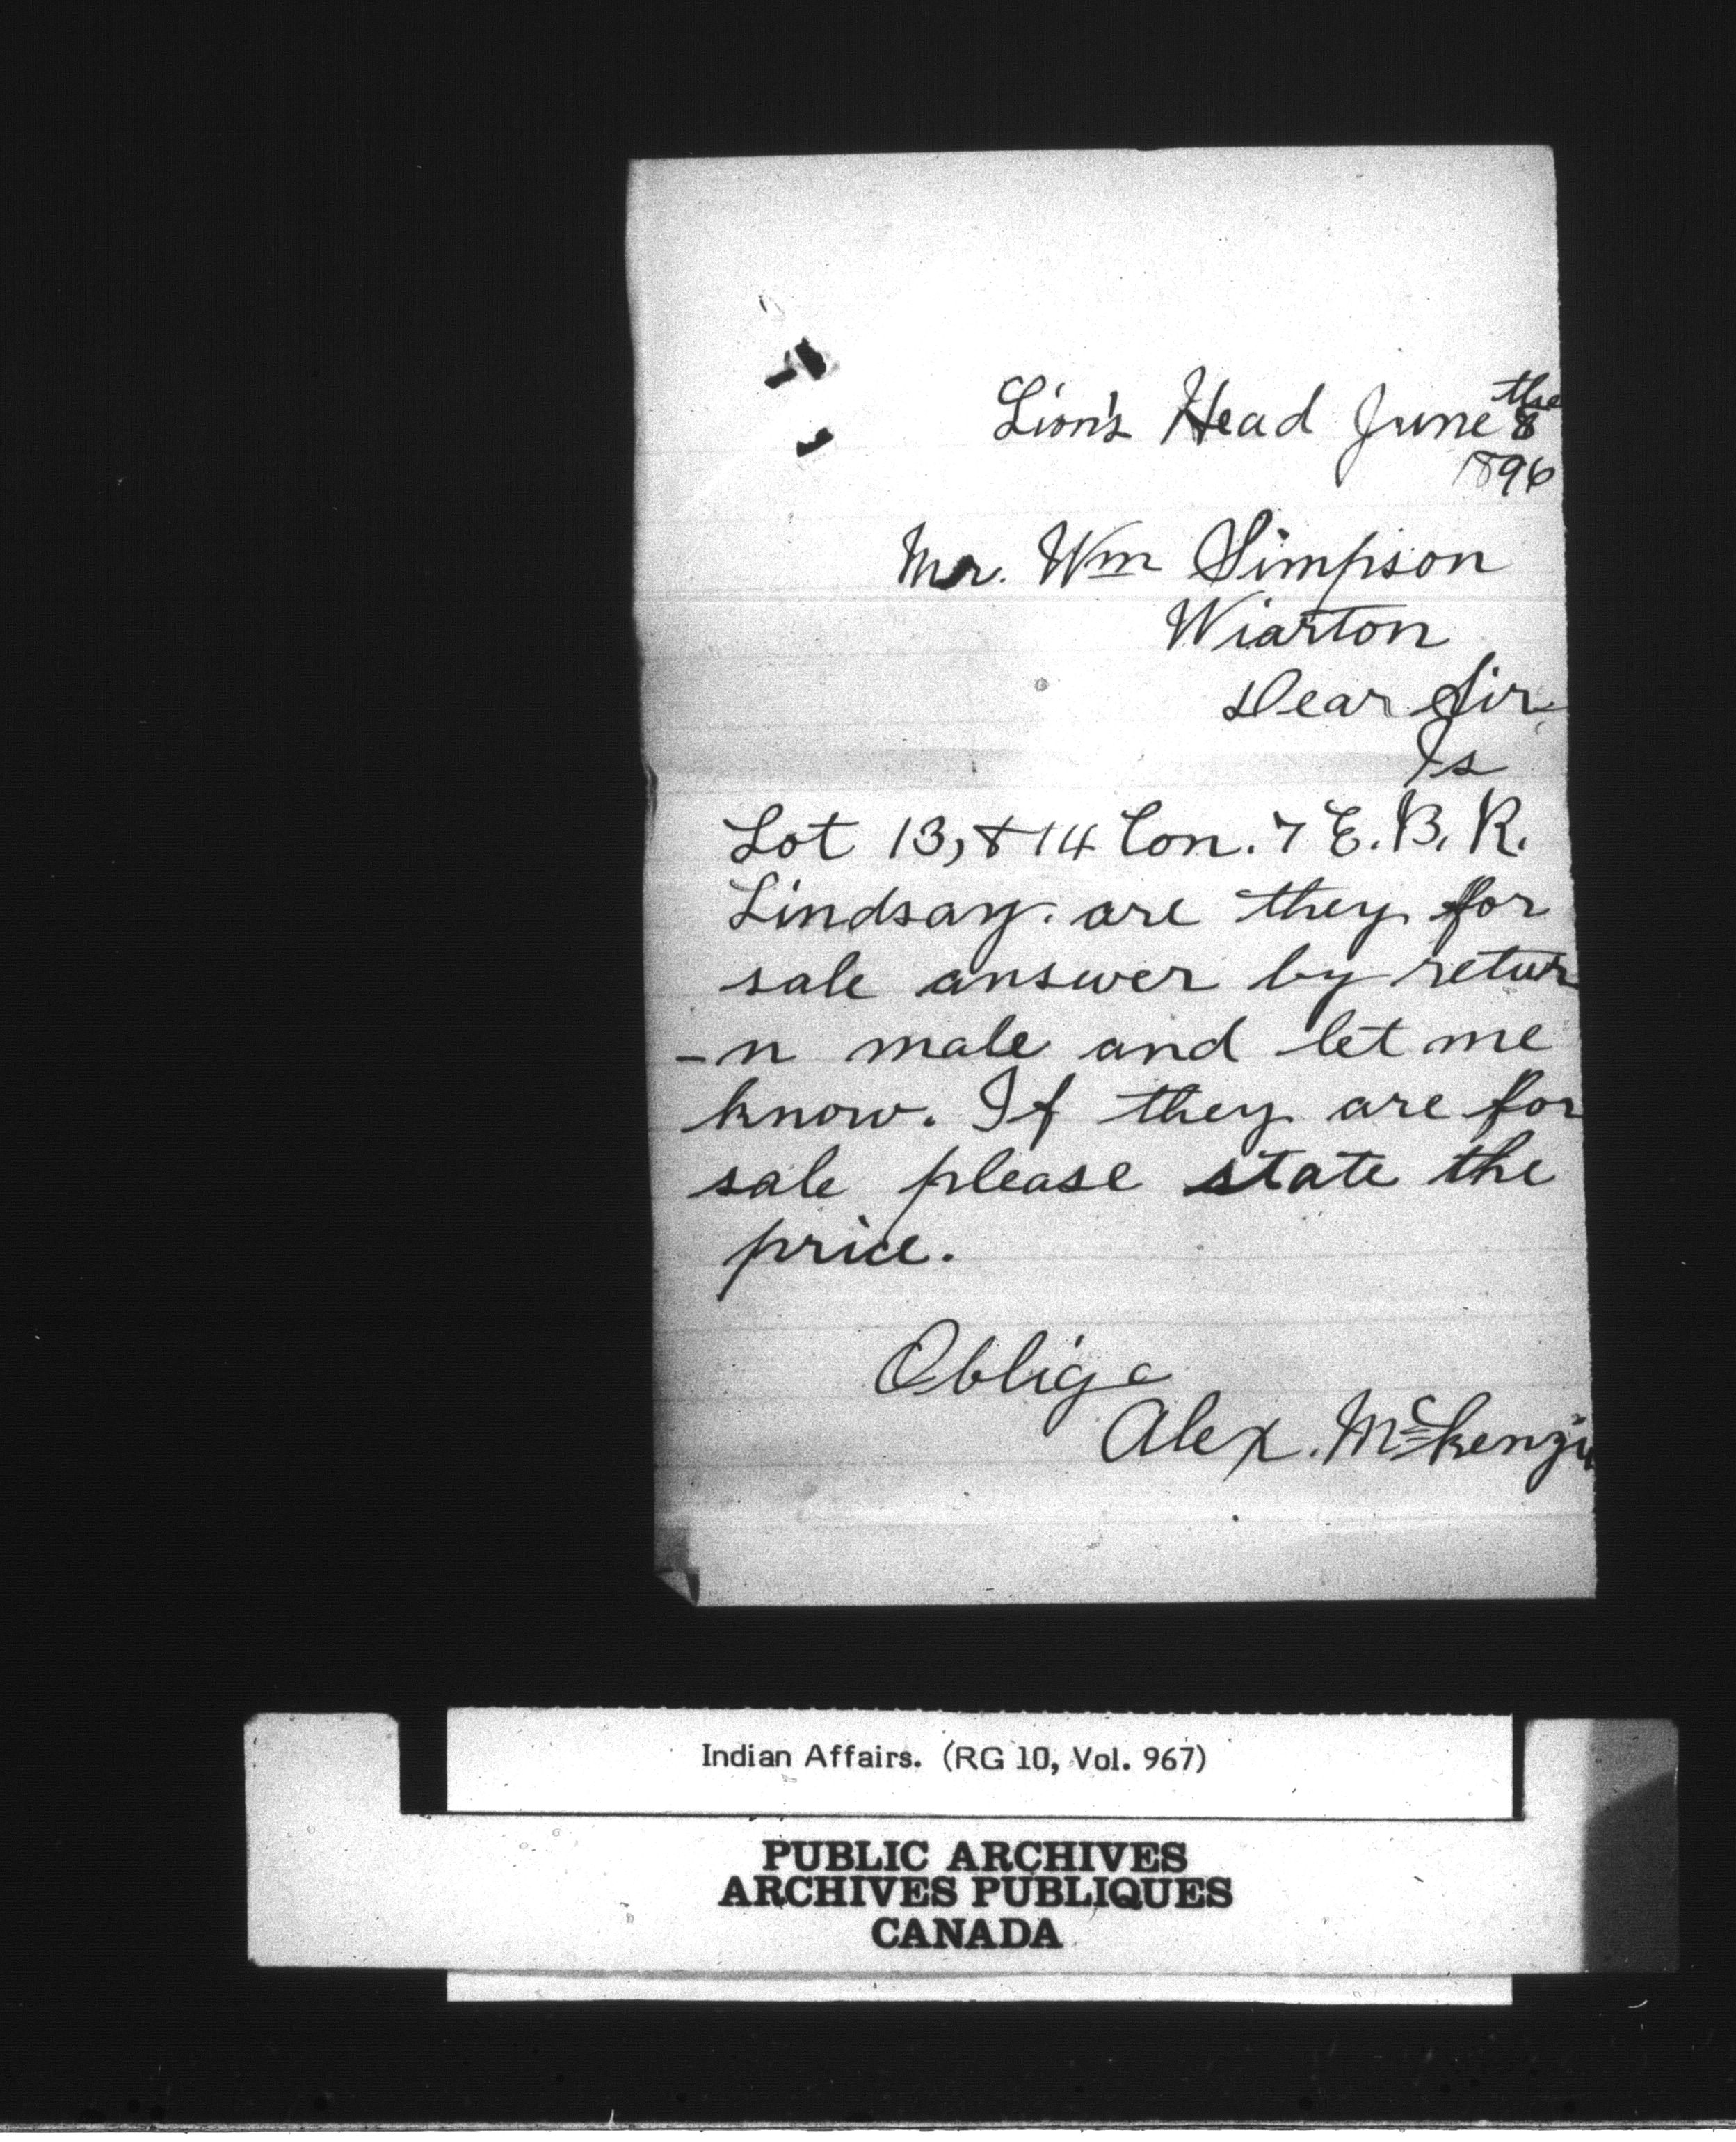 Lion's Head June the 8
1896
Mr. Wm Simpson
Wiarton
Dear Sir,
Is
Lot 13, & 14 Con. 7 E. B. R.
Lindsay. are they for
sale answer by retur
-n male and let me
know. If they are for
sale please state the
price.
Oblige
Alex. McKenzie
Indian Affairs. (RG 10, Vol. 967)
PUBLIC ARCHIVES
ARCHIVES PUBLIQUES
CANADA